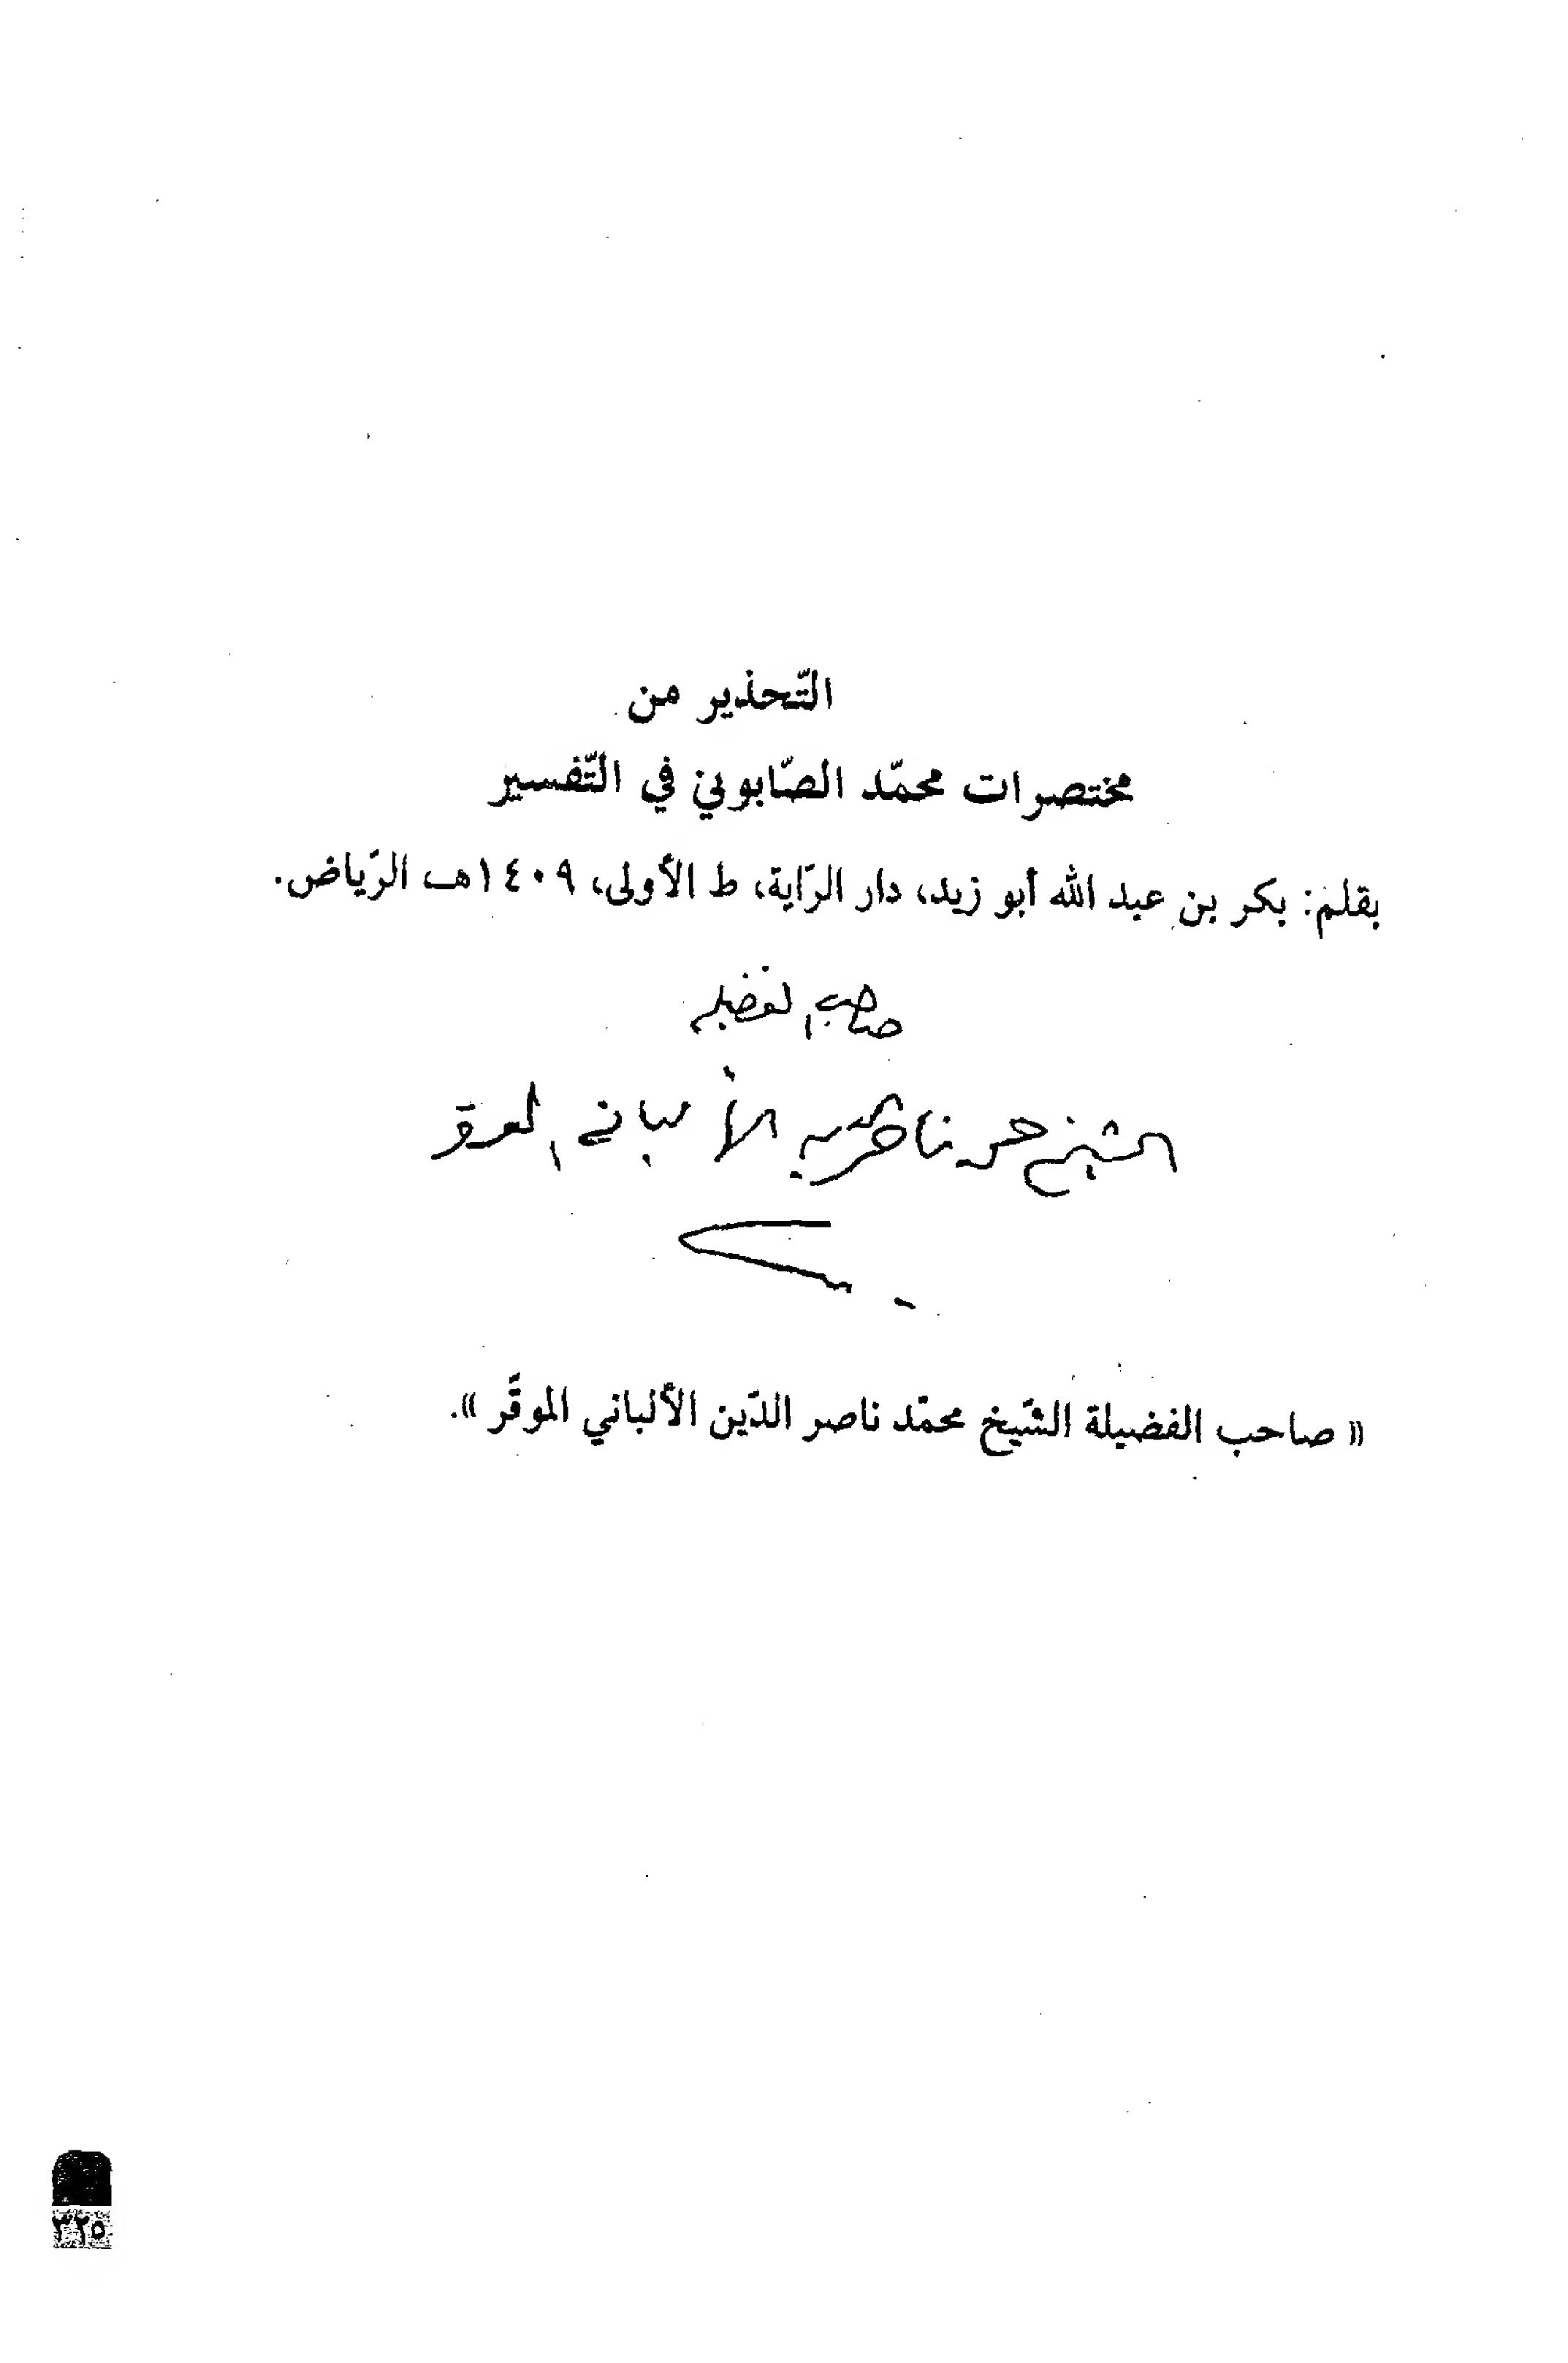 التّحذير من
مختصرات محمّد الصّابوني في التّفسير
بقلم: بكر بن عبد الله أبو زيد، دار الرّاية، ط الأولى، ١٤٠٩هـ الرّياض.
صاحب الفضيلة
الشيخ محمد ناصر الدين الألباني الموقر
« صاحب الفضيلة الشّيخ محمّد ناصر الدّين الألباني الموقّر ».
٣٢٥